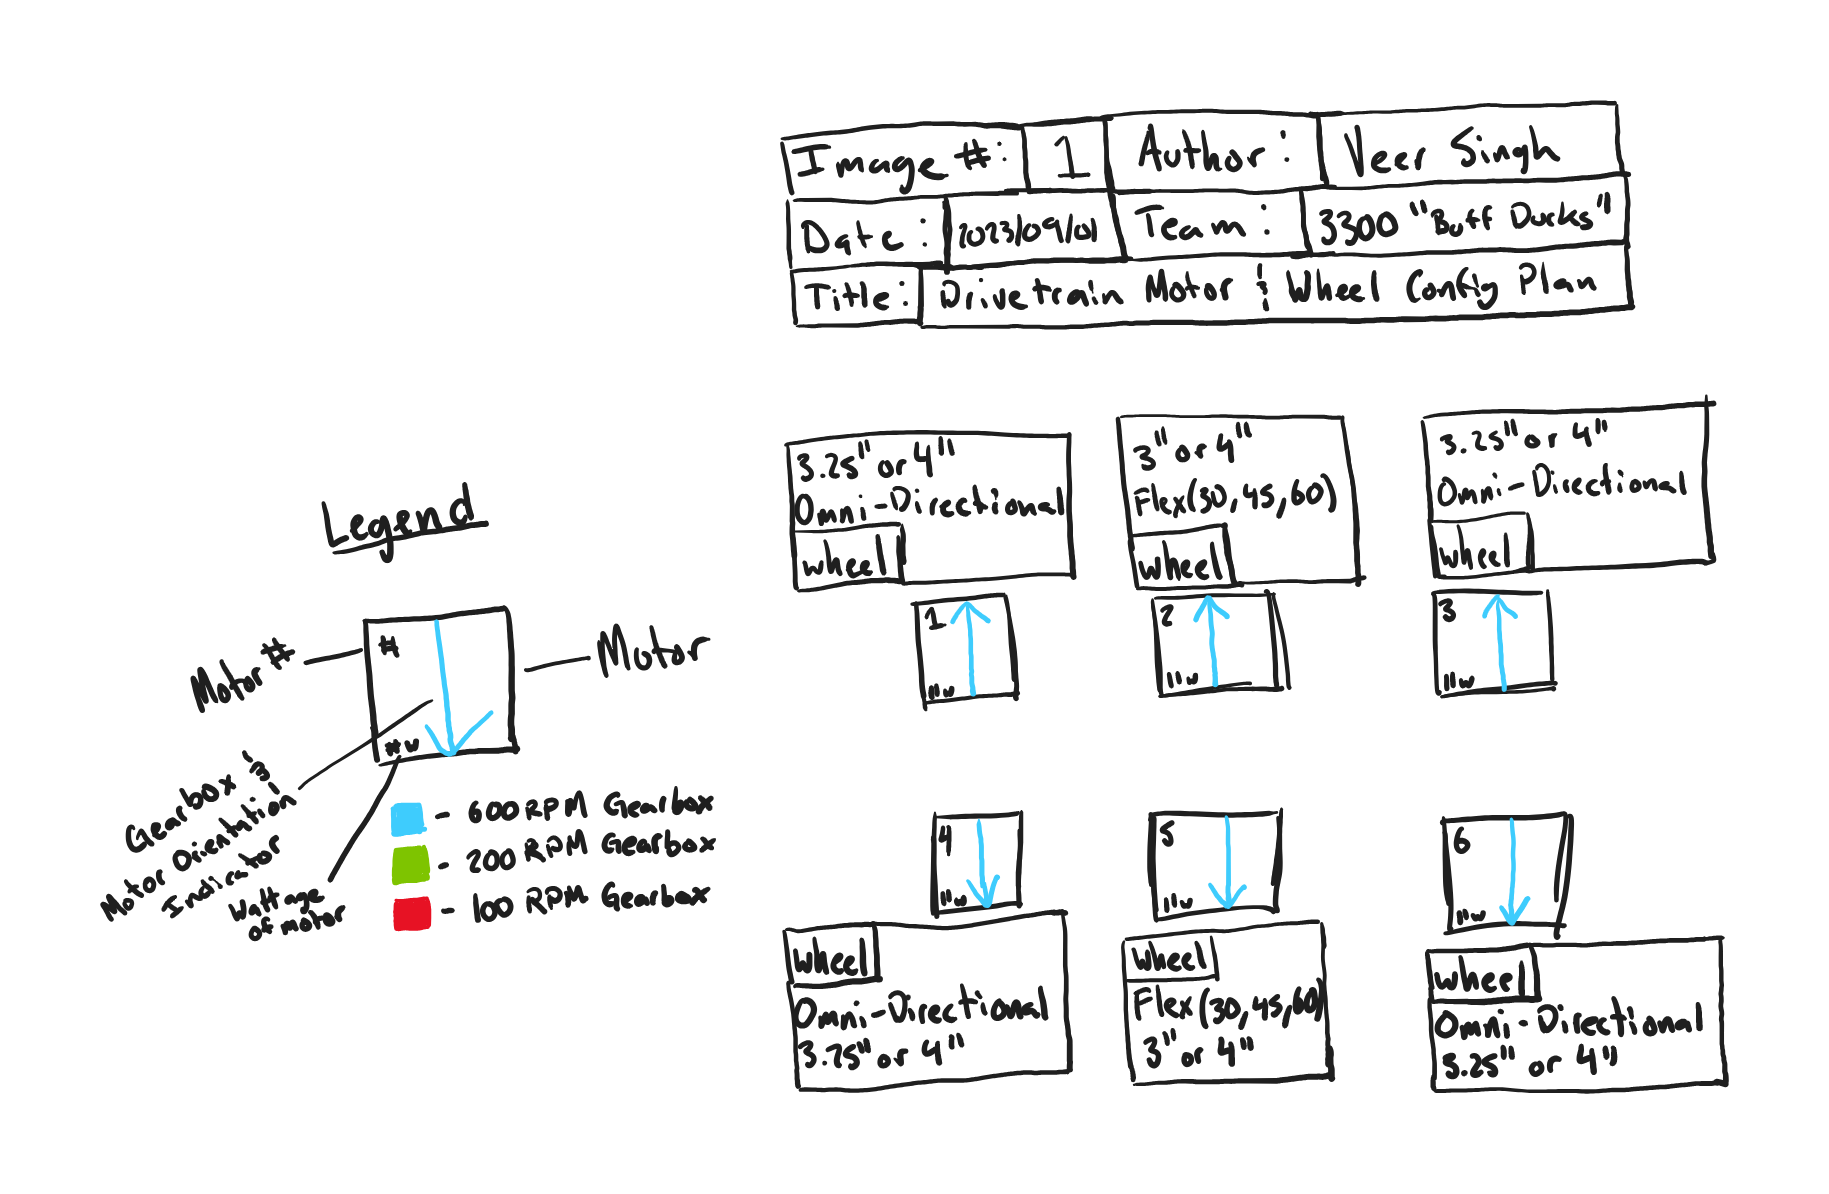 Image #: 1 Author: Veer Singh
Date: 2023/09/01 Team: 3300 "Buff Ducks"
Title: Drivetrain Motor & Wheel Config Plan
Legend
Motor #
#
#w
Motor
Gearbox &
Motor Orientation
Indicator
Wattage
of motor
- 600 RPM Gearbox
- 200 RPM Gearbox
- 100 RPM Gearbox
3.25" or 4"
Omni-Directional
Wheel
1
11w
3" or 4"
Flex(30,45,60)
Wheel
2
11w
3.25" or 4"
Omni-Directional
Wheel
3
11w
4
11w
Wheel
Omni-Directional
3.25" or 4"
5
11w
Wheel
Flex(30,45,60)
3" or 4"
6
11w
Wheel
Omni-Directional
3.25" or 4"